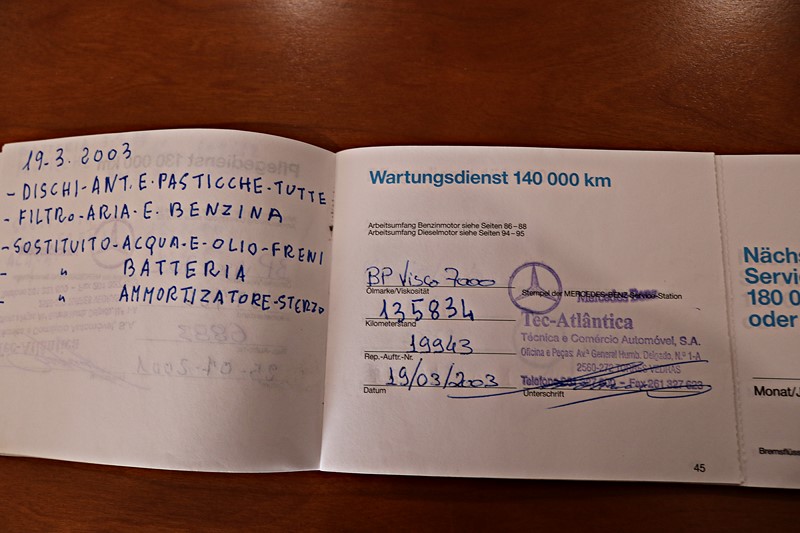 19.3.2003
- DISCHI-ANT.E.PASTICCHE-TUTTE
- FILTRO-ARIA-E. BENZINA
-SOSTITUITO-ACQUA-E-OLIO-FRENI
- " BATTERIA
- " AMMORTIZATORE-STERZO
Wartungsdienst 140 000 km
Arbeitsumfang Benzinmotor siehe Seiten 86–88
Arbeitsumfang Dieselmotor siehe Seiten 94–95
BP Visco 7000
Ölmarke/Viskosität
135834
Kilometerstand
19943
Rep.-Auftr.-Nr.
19/03/2003
Datum
Stempel der MERCEDES-BENZ Service-Station
Tec-Atlântica
Técnica e Comércio Automóvel, S.A.
Oficina e Peças: Av.ª General Humb. Delgado, N.º 1-A
2560-272 TORRES VEDRAS
Telefone - Fax 261 327 623
Unterschrift
45
Nächs
Servic
180 0
oder
Monat/J
Bremsflüss